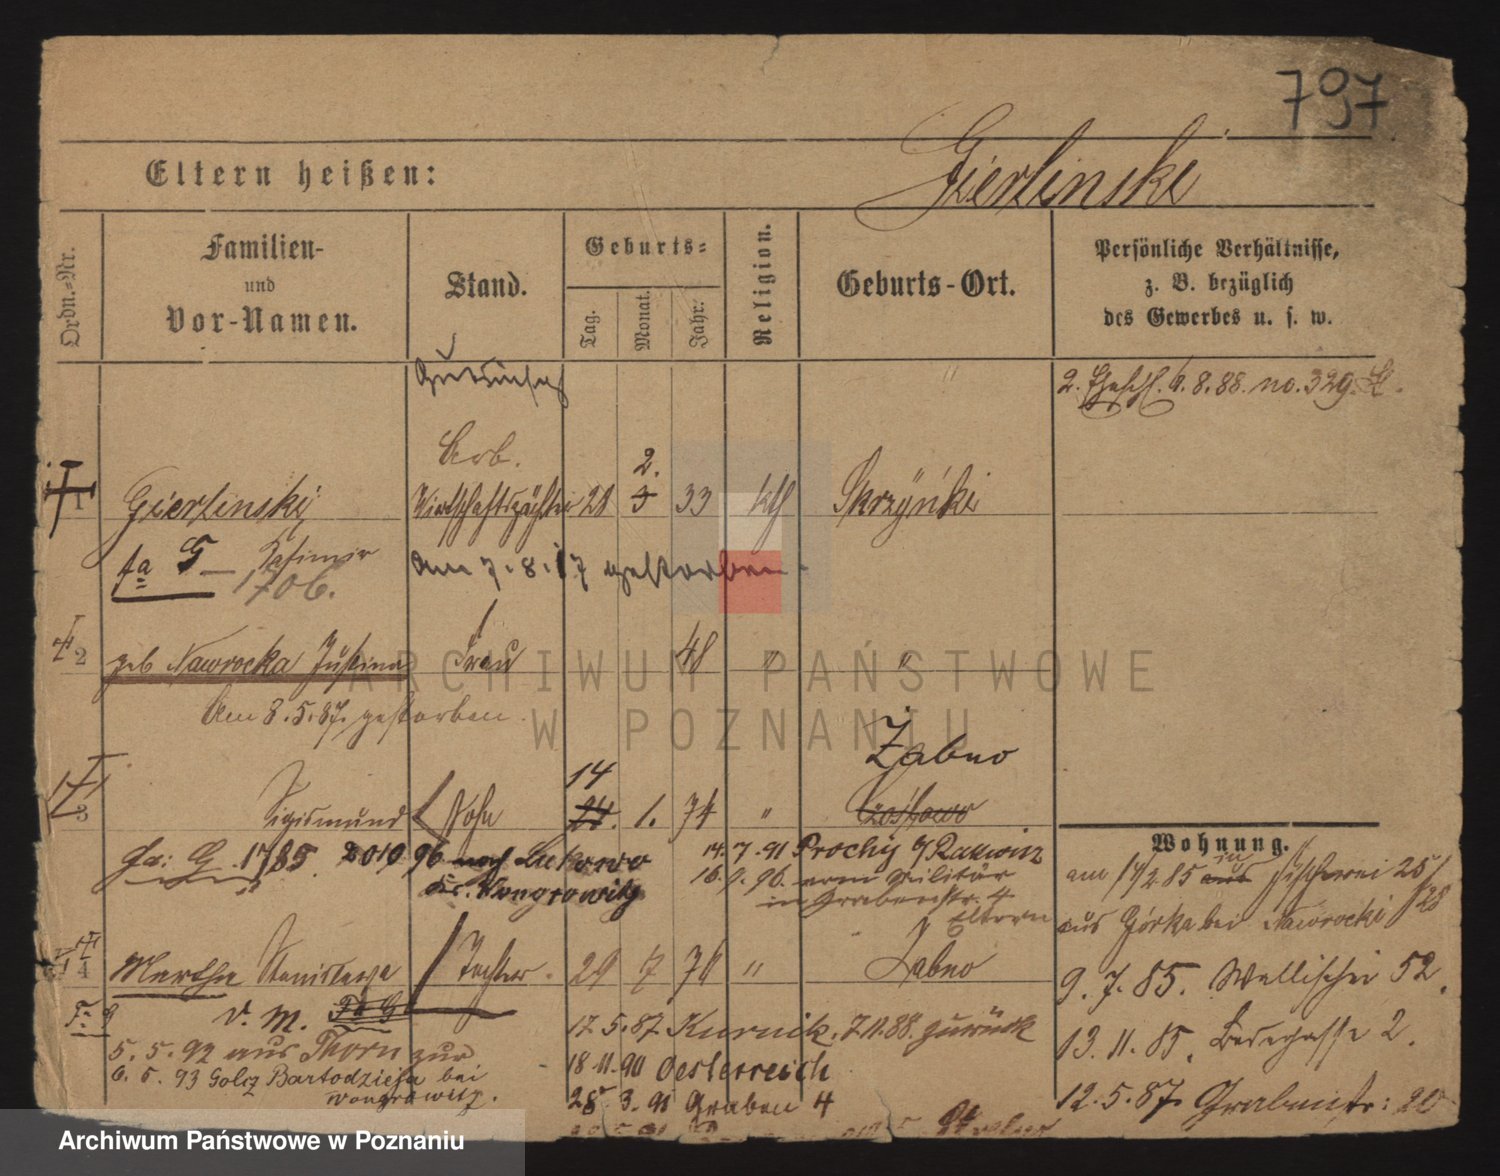 797
Gierlinski
Eltern heißen:
Ordn.-Nr.
Familien-
und
Vor-Namen.
Stand.
Geburts-
Tag.
Monat.
Jahr.
Religion.
Geburts-Ort.
Persönliche Verhältnisse,
z. B. bezüglich
des Gewerbes u. s. w.
2. Ehesch. 6. 8. 88. no. 329.
Arb.
2.
1 Gierlinski Wirtschaftspächter 28 3 33 kth Skrzyńki
fa G — Kasimir Am 7. 8. 17 gestorben.
1706.
2 geb Nawrocka Justina Frau 48 " "
Am 8. 5. 87. gestorben.
Żabno
14
3 Sigismund Sohn 24. 1. 74 "
Wohnung.
fa: G. 1785. 2 0 10 96 nach Lukowo 14. 7. 91 Prochy
Kr. Wongrowitz 16. 9. 96. vom Militär
in Grabenstr. 4
Eltern
am 17/2 85 Fischerei 25/28
aus Górka bei Nawrocki
4 Martha Stanislawa Tochter. 29 7 76 " Żabno
9. 7. 85. Wallischei 52.
v. M. Fa G
17. 5. 87 Kurnik. 7.11.88. zurück
13. 11. 85. 2.
5. 5. 92 aus Thorn zur
18. 11. 90 Oesterreich
6. 5. 93 Bartodzieja bei
Wongrowitz.
28. 3. 91 Graben 4
12. 5. 87. Grabenstr: 20
ARCHIWUM PAŃSTWOWE
W POZNANIU
Archiwum Państwowe w Poznaniu